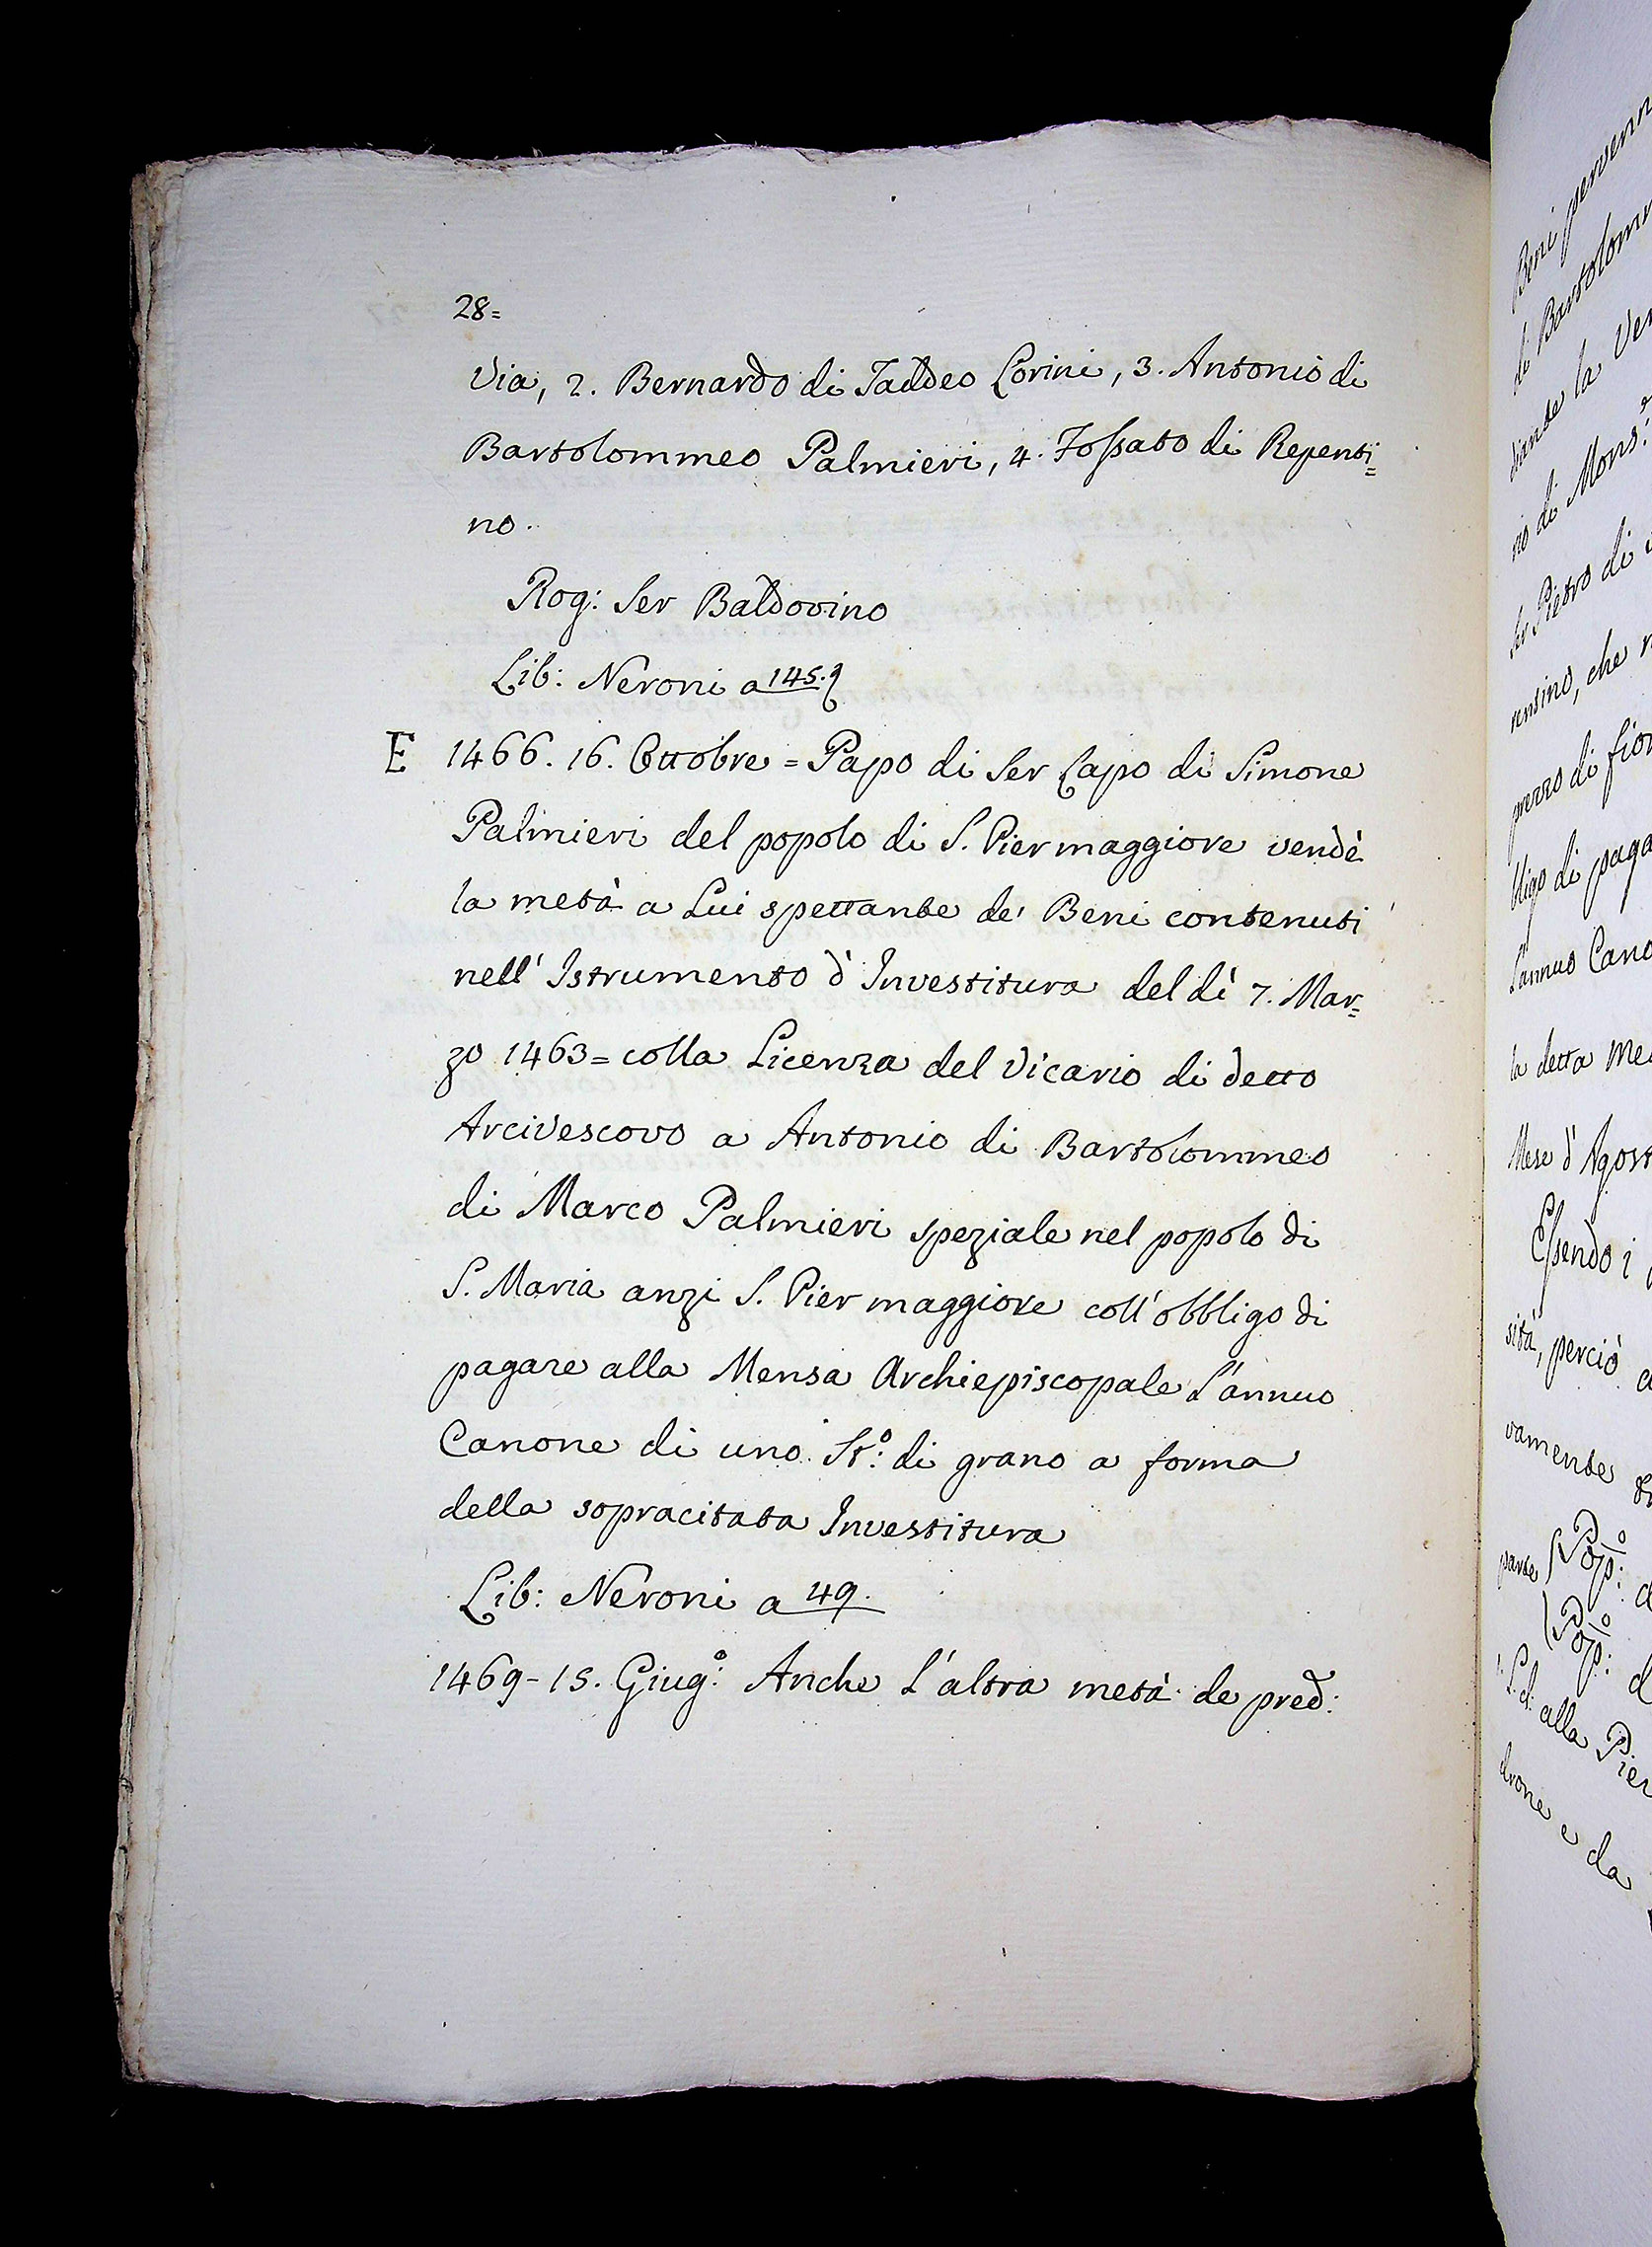 28=
Via, 2. Bernardo di Taddeo Lorini, 3. Antonio di
Bartolommeo Palmieri, 4. Fossato di Repenti=
no.
Rog: Ser Baldovino
Lib: Neroni a 145.
E 1466. 16. Ottobre = Papo di Ser Lapo di Simone
Palmieri del popolo di S. Pier maggiore vendè
la metà a Lui spettante de' Beni contenuti
nell' Istrumento d' Investitura del dì 7. Mar=
zo 1463 = colla Licenza del Vicario di detto
Arcivescovo a Antonio di Bartolommeo
di Marco Palmieri speziale nel popolo di
S. Maria anzi S. Pier maggiore coll' obbligo di
pagare alla Mensa Archiepiscopale l'annuo
Canone di uno St.º: di grano a forma
della sopracitata Investitura
Lib: Neroni a 49.
1469 - 15. Giug.º: Anche l'altra metà de pred:
Beni
di
la
di Mons.
Ser Pietro di
che
prezzo di
di
l'annuo
la detta
Mese d'
Essendo i
perciò
vamente
parte Pop.º:
Pop.º:
alla
e da